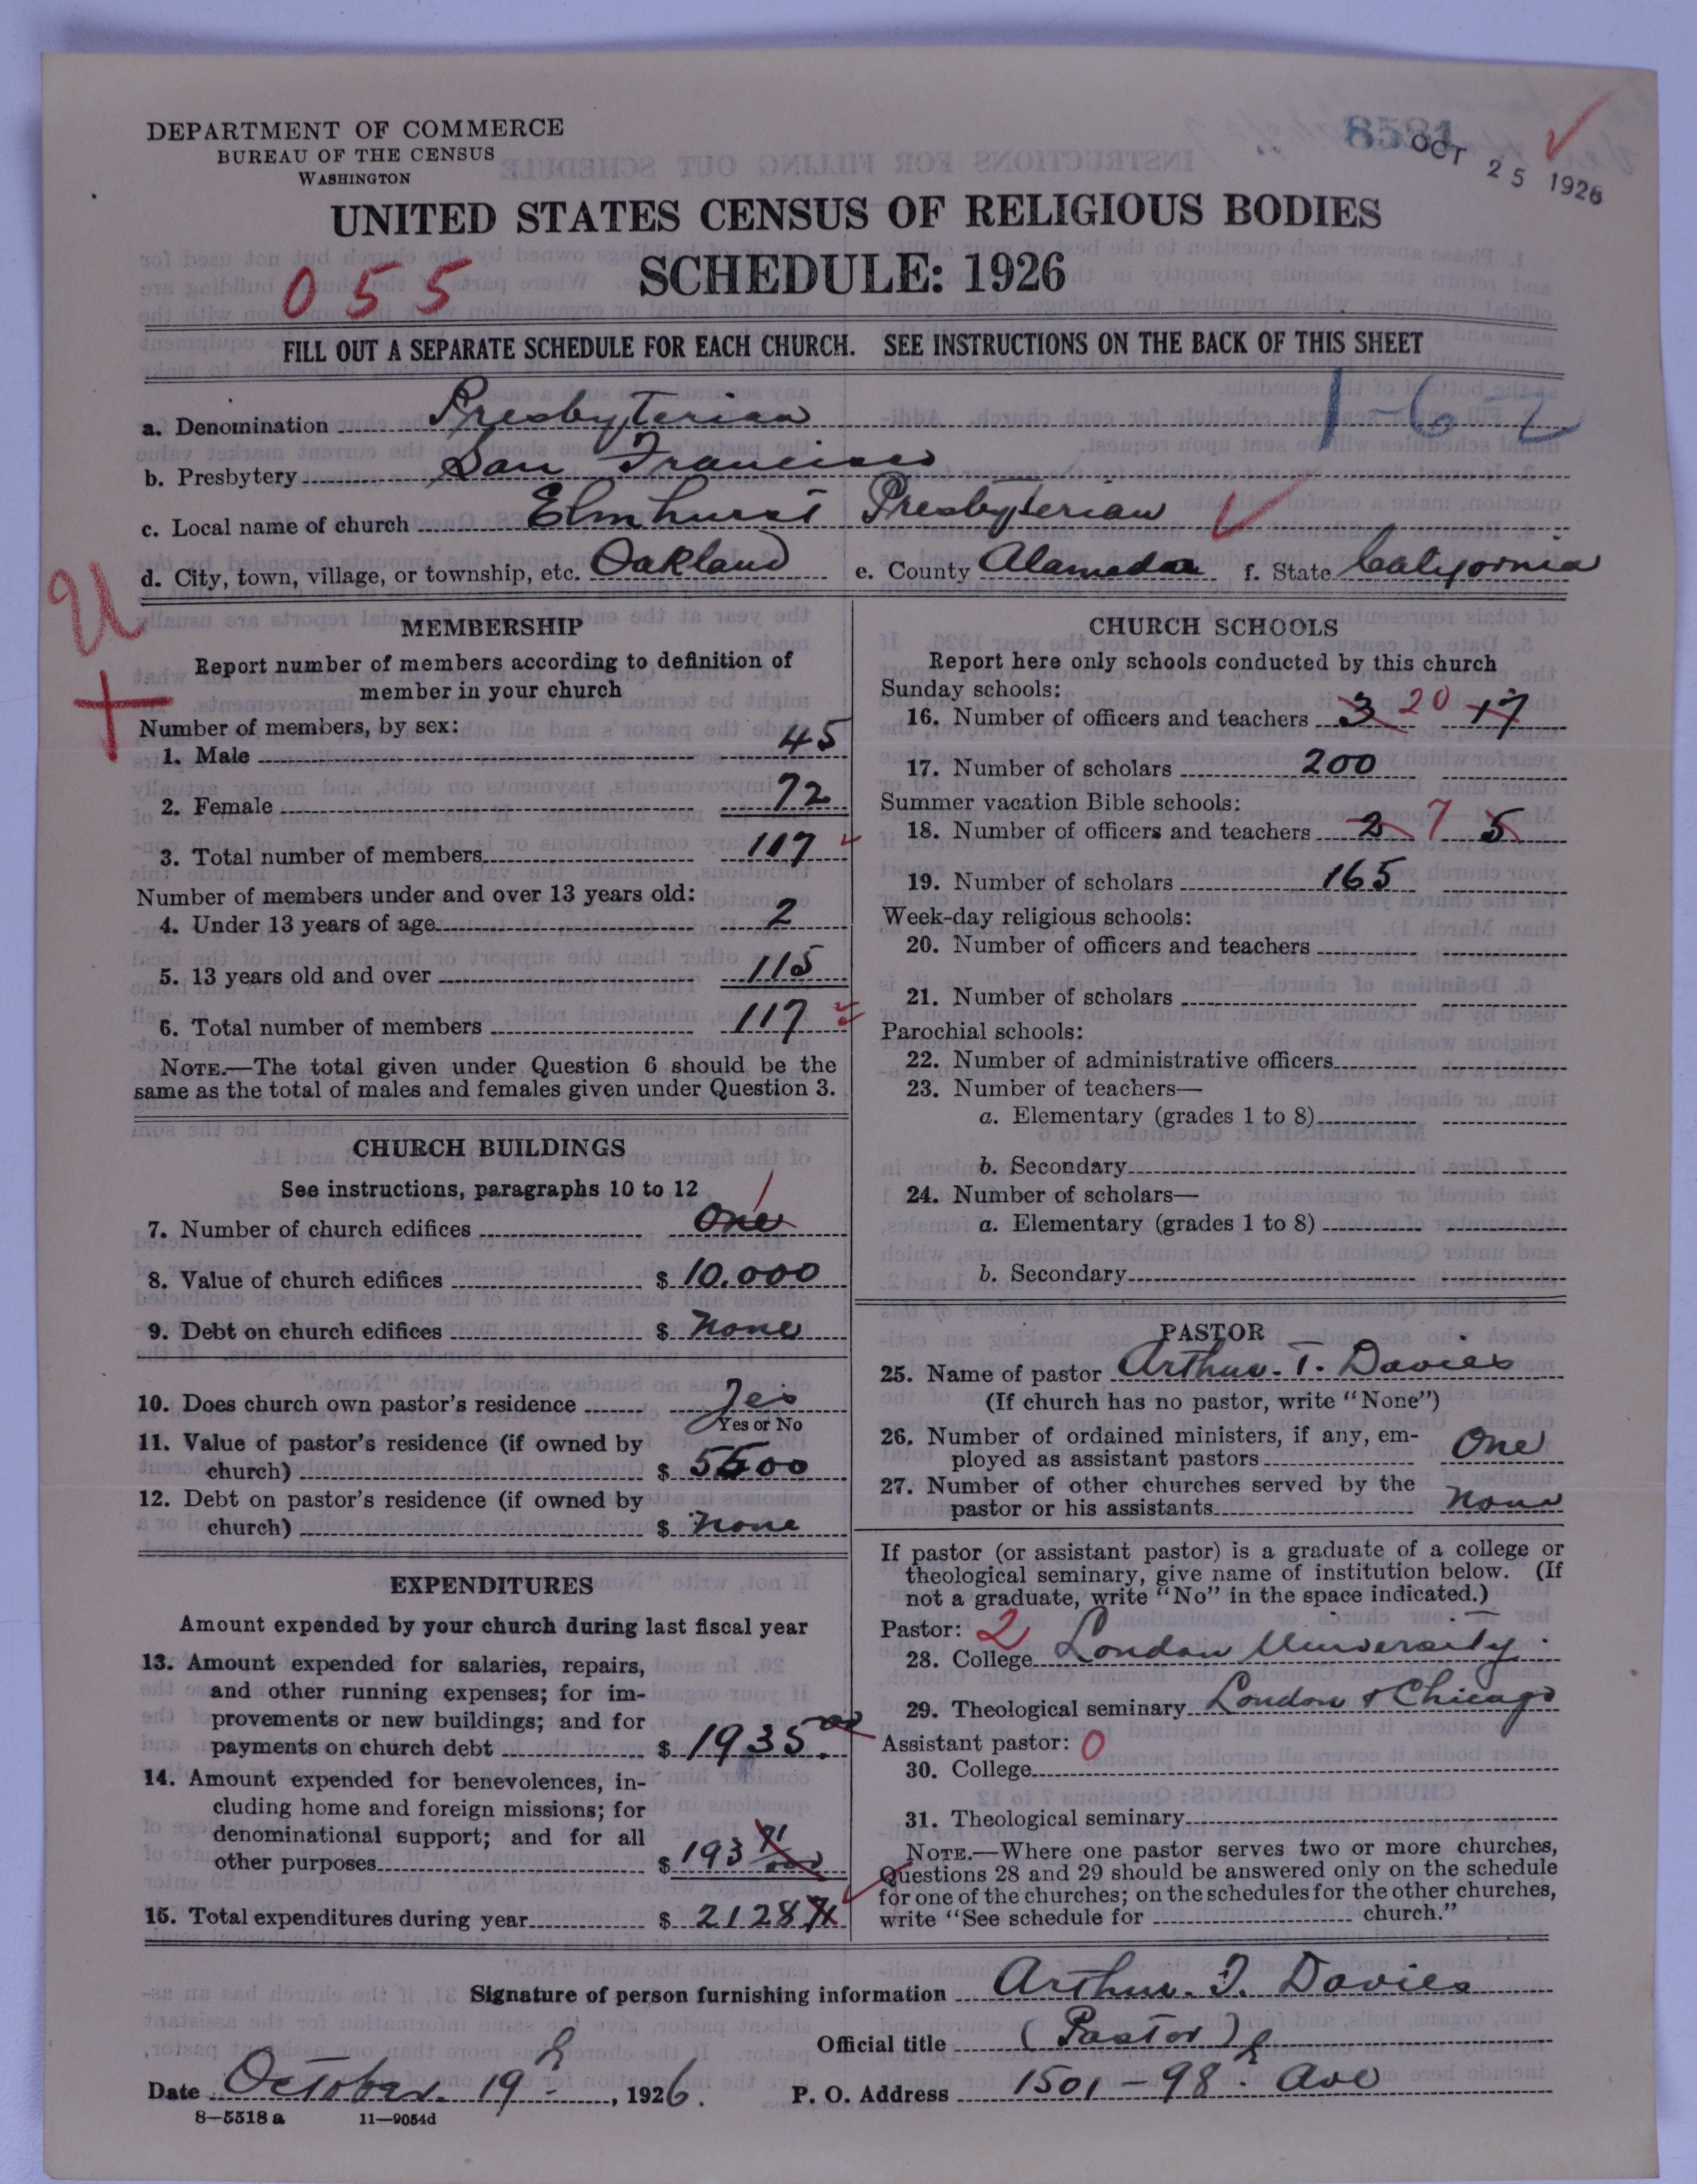 DEPARTMENT OF COMMERCE
BUREAU OF THE CENSUS
WASHINGTON
8581
OCT 25 1926
UNITED STATES CENSUS OF RELIGIOUS BODIES
SCHEDULE: 1926
055
FILL OUT A SEPARATE SCHEDULE FOR EACH CHURCH. SEE INSTRUCTIONS ON THE BACK OF THIS SHEET
1-62
a. Denomination Presbyterian
b. Presbytery San Francisco
c. Local name of church Elmhurst Presbyterian
d. City, town, village, or township, etc. Oakland e. County Alameda f. State California
U
MEMBERSHIP
Report number of members according to definition of
member in your church
Number of members, by sex:
1. Male 45
2. Female 72
3. Total number of members 117
Number of members under and over 13 years old:
4. Under 13 years of age 2
5. 13 years old and over 115
6. Total number of members 117
NOTE.—The total given under Question 6 should be the
same as the total of males and females given under Question 3.
CHURCH BUILDINGS
See instructions, paragraphs 10 to 12
7. Number of church edifices One 1
8. Value of church edifices $ 10.000
9. Debt on church edifices $ None
10. Does church own pastor's residence Yes
Yes or No
11. Value of pastor's residence (if owned by
church) $ 5500
12. Debt on pastor's residence (if owned by
church) $ None
EXPENDITURES
Amount expended by your church during last fiscal year
13. Amount expended for salaries, repairs,
and other running expenses; for im-
provements or new buildings; and for
payments on church debt $ 1935.00
14. Amount expended for benevolences, in-
cluding home and foreign missions; for
denominational support; and for all
other purposes $ 193 71/100
15. Total expenditures during year $ 2128 71
CHURCH SCHOOLS
Report here only schools conducted by this church
Sunday schools:
16. Number of officers and teachers 3 20 17
17. Number of scholars 200
Summer vacation Bible schools:
18. Number of officers and teachers 2 7 5
19. Number of scholars 165
Week-day religious schools:
20. Number of officers and teachers
21. Number of scholars
Parochial schools:
22. Number of administrative officers
23. Number of teachers—
a. Elementary (grades 1 to 8)
b. Secondary
24. Number of scholars—
a. Elementary (grades 1 to 8)
b. Secondary
PASTOR
25. Name of pastor Arthur. T. Davies
(If church has no pastor, write "None")
26. Number of ordained ministers, if any, em-
ployed as assistant pastors One
27. Number of other churches served by the
pastor or his assistants None
If pastor (or assistant pastor) is a graduate of a college or
theological seminary, give name of institution below. (If
not a graduate, write "No" in the space indicated.)
Pastor: 2
28. College London University.
29. Theological seminary London & Chicago
Assistant pastor: 0
30. College
31. Theological seminary
NOTE.—Where one pastor serves two or more churches,
Questions 28 and 29 should be answered only on the schedule
for one of the churches; on the schedules for the other churches,
write "See schedule for church."
Signature of person furnishing information Arthur. T. Davies
Official title (Pastor)
Date October. 19th, 1926. P. O. Address 1501-98th Ave
8—5518a 11—9054d